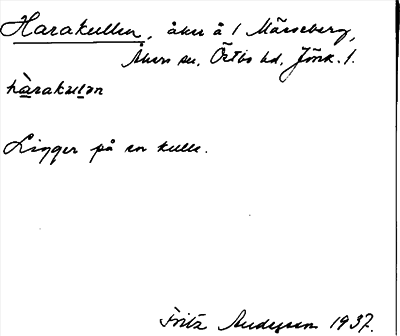 Harakullen, åker å 1 Mårseberg,
Åkers sn, Östbo hd, Jönk. l.
hàrakulən
Ligger på en kulle.
Fritz Andersson 1937.